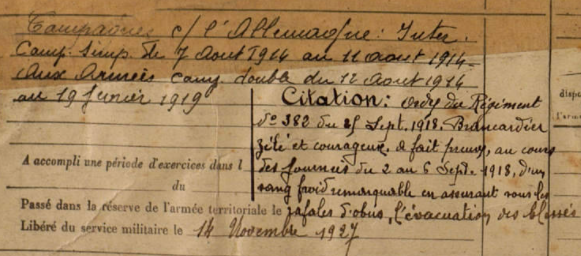 Campagnes c/ l'Allemagne: Inter.
Camp. simp. de 7 Août 1914 au 11 août 1914 -
Aux Armées camp. double du 12 Août 1914
au 19 février 1919
Citation: ordre du Régiment
N° 382 du 25 Sept. 1918. Brancardier
zélé et courageux. a fait preuve, au cours
des journées du 2 au 6 Sept. 1918, d'un
sang froid remarquable en assurant sous les
rafales d'obus, l'évacuation des blessés
dispe
l'armé
A accompli une période d'exercices dans l
du
Passé dans la réserve de l'armée territoriale le
Libéré du service militaire le 14 Novembre 1927